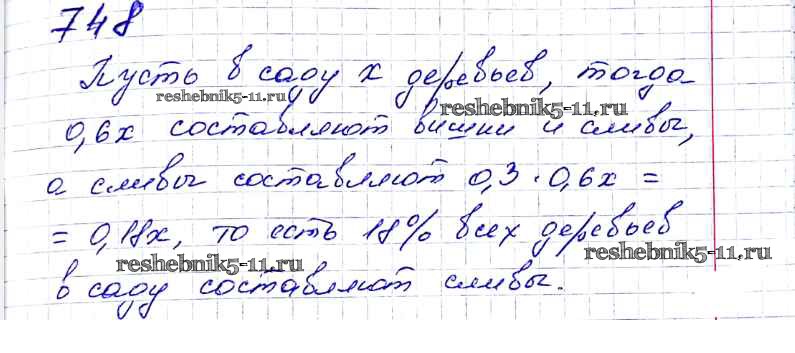 748
Пусть в саду x деревьев, тогда
reshebnik5-11.ru
reshebnik5-11.ru
0,6x составляют вишни и сливы,
а сливы составляют 0,3 · 0,6x =
= 0,18x, то есть 18% всех деревьев
reshebnik5-11.ru
reshebnik5-11.ru
в саду составляют сливы.